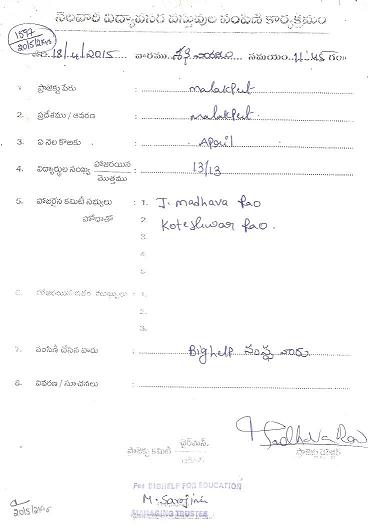 నెలవారీ విద్యావసర వస్తువుల పంపిణీ కార్యక్రమం
1597
2015/2Km
18/4/2015 వారము శనివారము సమయం 11-45 గం
1. ప్రాజెక్టు పేరు : malakpet
2. ప్రదేశము / ఆవరణ : malakpet
3. ఏ నెల కొఱకు : April
4. విద్యార్థుల సంఖ్య హాజరయిన / మొత్తము : 13/13
5. హాజరైన కమిటీ సభ్యులు : 1. J. madhava rao
హోదాతో 2. Koteshwar rao.
3.
4.
5.
6. : 1.
2.
3.
7. పంపిణీ చేసిన వారు : Bighelp సంస్థ వారు
8. వివరణ / సూచనలు :
Madhava Rao
ప్రాజెక్టు కమిటీ ఛైర్మన్
For BIGHELP FOR EDUCATION
M. Sarojini
MANAGING TRUSTEE